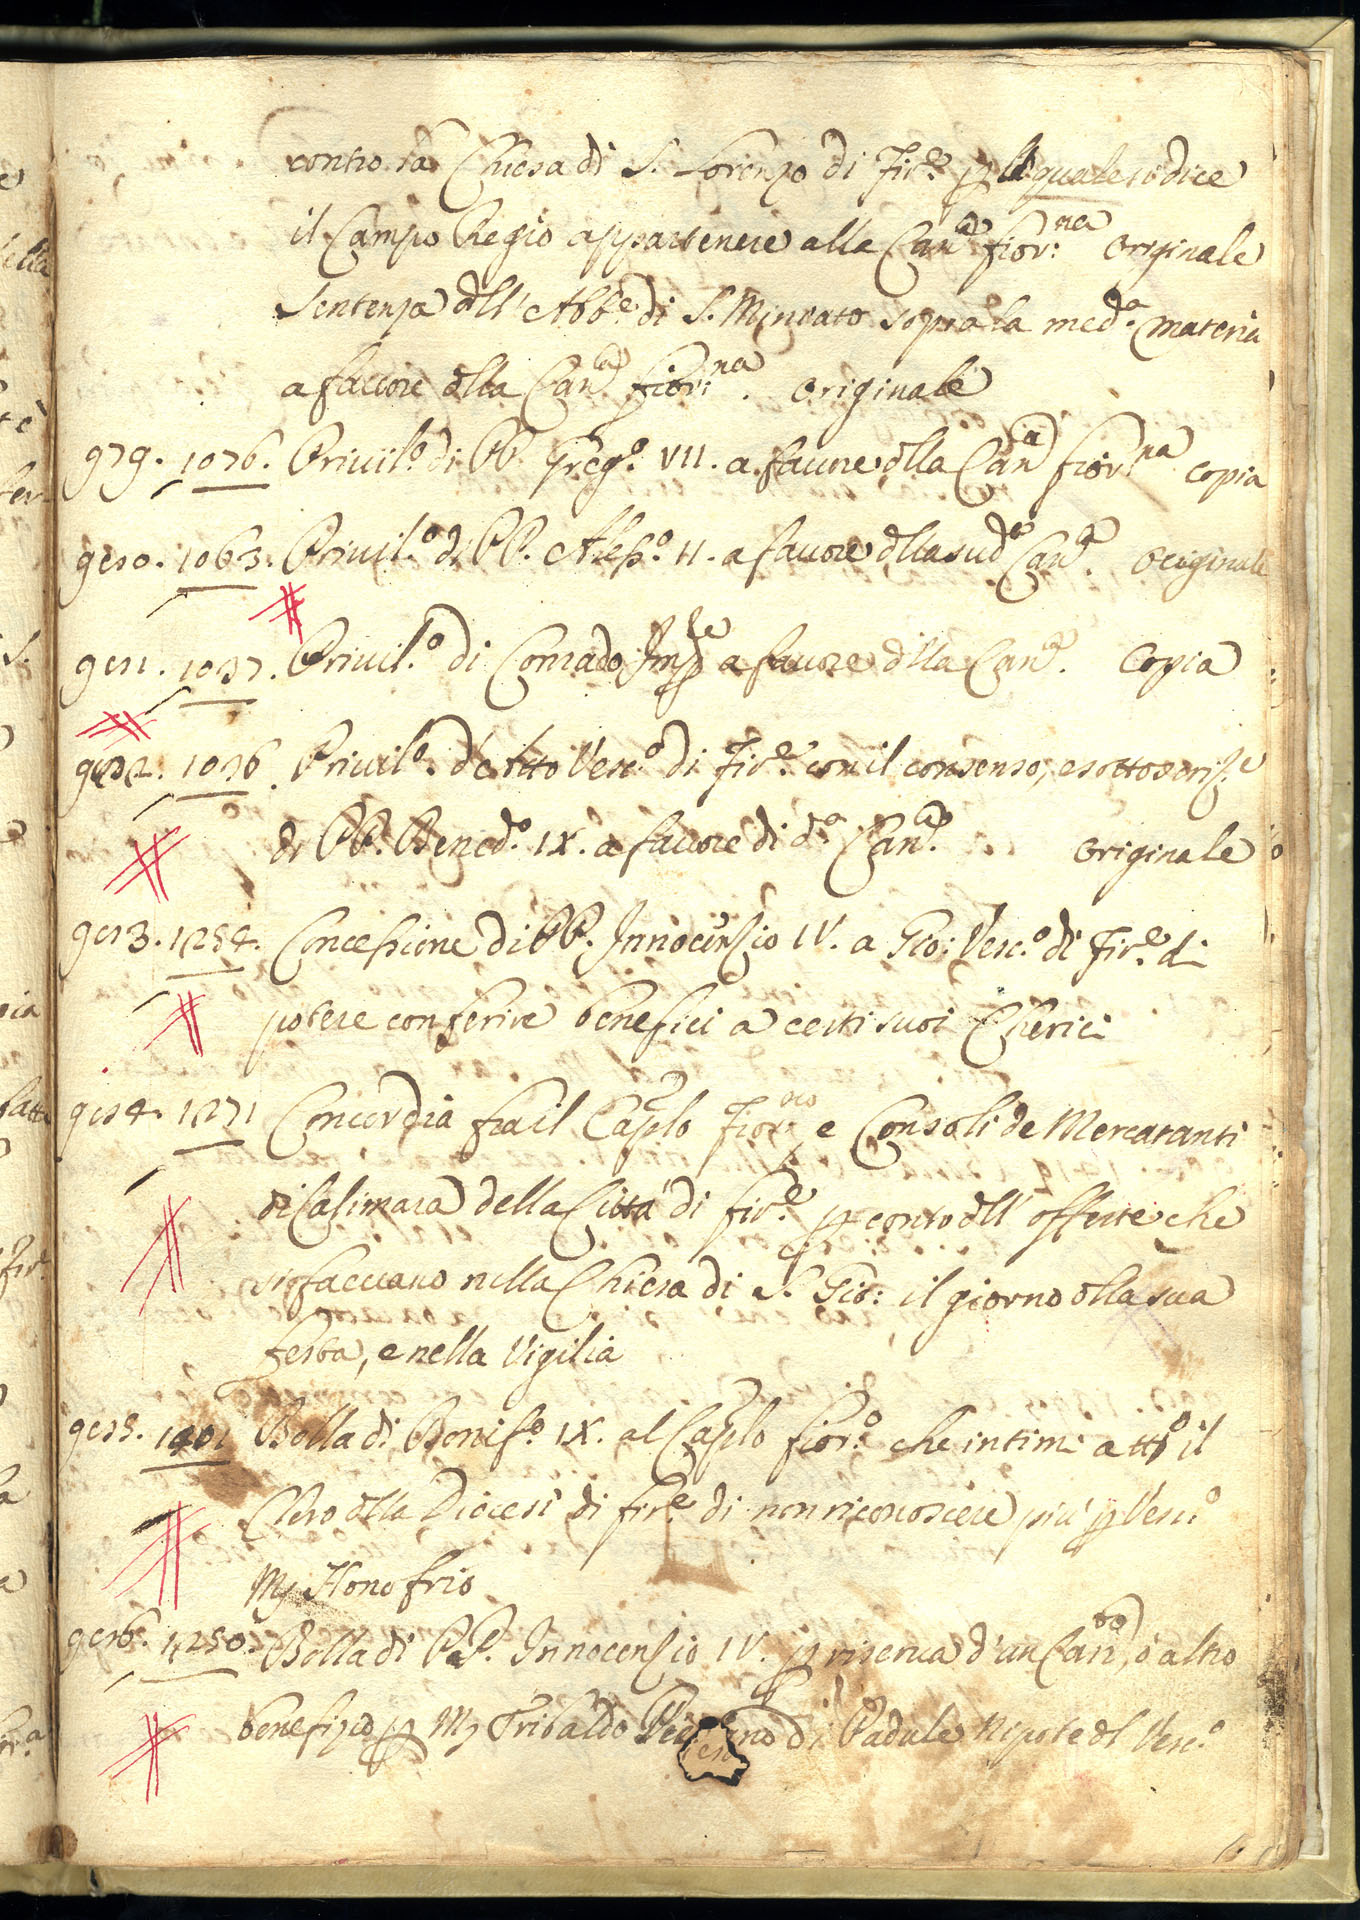 contro la Chiesa di S. Lorenzo di Fir.e p la quale si dice
il Campo Regio appartenere alla Can.a fior:na originale
Sentenza dll' Abb.e di S. Miniato sopra la med.a materia
a favore dlla Can.a fior:na. originale
979. 1076. Privil.o di PP. Greg.o VII. a favore dlla Can.a fior:na copia
980. 1063. Privil.o di PP. Aless.o II. a favore dlla sud.a Can.a. originale
981. 1037. Privil.o di Corrado Imp.le a favore dlla Can.a. Copia
982. 1036. Privil.o d'Atto Vesc.o di Fir.e con il consenso, e sottoscriz.e
di PP. Bened.o IX. a favore di d.a Can.a. originale
983. 1254. Concessione di PP. Innocenzio IV. a Gio: Vesc.o di Fir.e di
potere conferire benefici a certi suoi Cherici
984. 1271 Concordia fra il Caplo Fior:no e Consoli de Mercatanti
di Calimara della Città di fir.e p conto dll' offerte che
si facciano nella Chiesa di S. Gio: il giorno dlla sua
festa, e nella Vigilia
985. 1401 Bolla di Bonif.o IX. al Caplo fior.o che intimi a tt.o il
Clero dlla Diocesi di fir.e di non riconoscere più p Vesc.o
Mr Honofrio
986. 1250. Bolla di PP. Innocenzio IV. p riserva d'un Can.to, o altro
benefizio p Mr Tribaldo di Padule Nipote dl Vesc.o